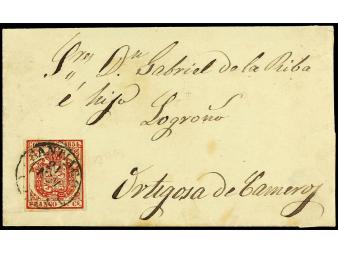 Sres Dn Gabriel de la Riba
é hijo
Logroño
Ortigosa de Cameros
1854
FRANCO